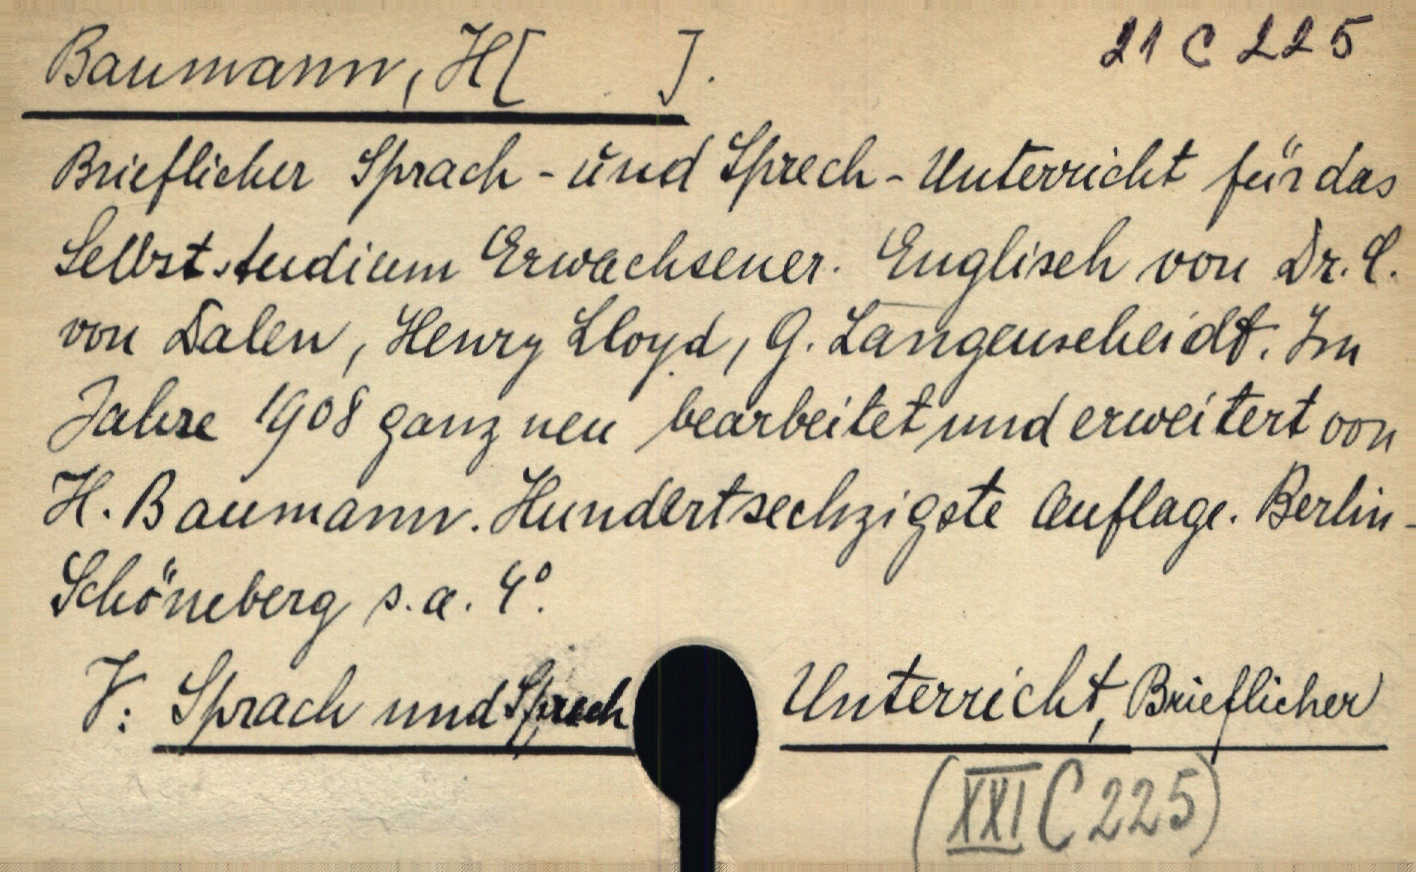 Baumann, H[ ]. 21 C 225
Brieflicher Sprach- und Sprech-Unterricht für das
Selbststudium Erwachsener. Englisch von Dr. C.
von Dalen, Henry Lloyd, G. Langenscheidt. Im
Jahre 1908 ganz neu bearbeitet und erweitert von
H. Baumann. Hundertsechzigste Auflage. Berlin-
Schöneberg s.a. 4°.
V: Sprach und Sprech Unterricht, Brieflicher
(XXI C 225)